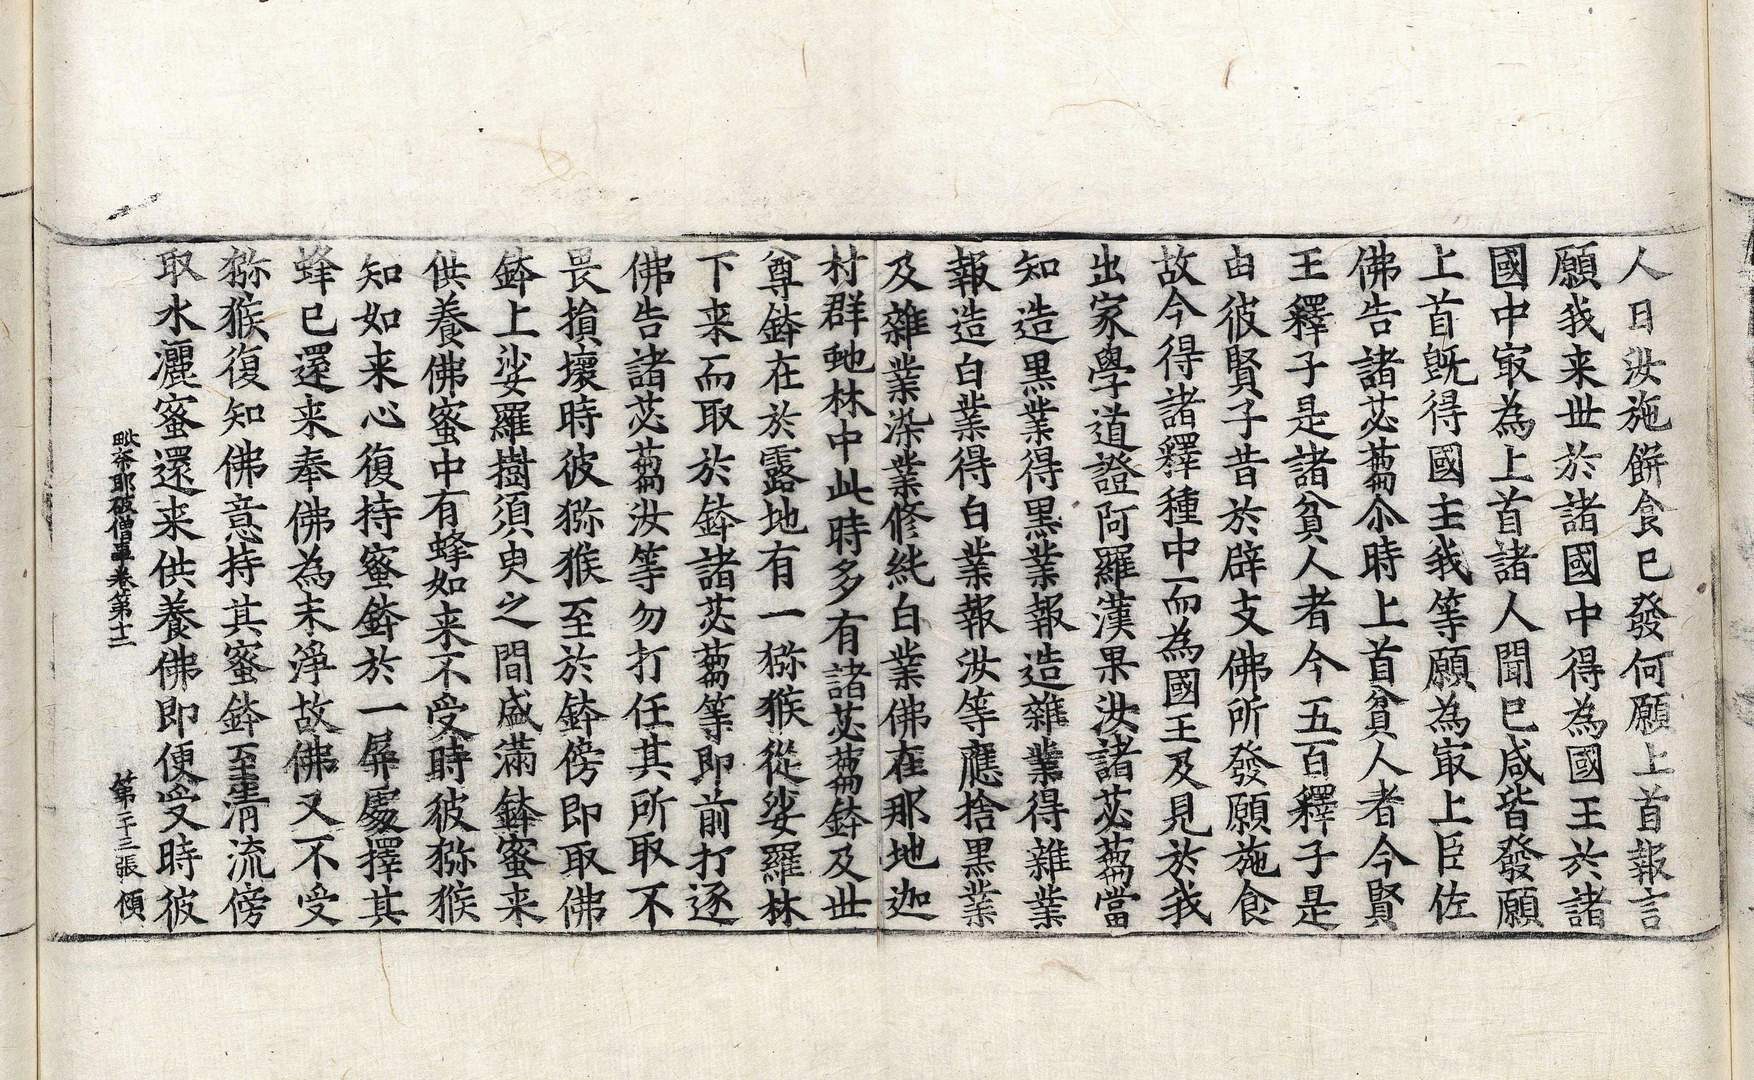 人曰汝施餅食已發何願上首報言
願我来世於諸國中得為國王於諸
國中㝡為上首諸人聞已咸皆發願
上首旣得國主我等願為㝡上臣佐
佛告諸苾蒭尒時上首貧人者今賢
王釋子是諸貧人者今五百釋子是
由彼賢子昔於辟支佛所發願施食
故今得諸釋種中而為國王及見於我
出家學道證阿羅漢果汝諸苾蒭當
知造黒業得黒業報造雜業得雜業
報造白業得白業報汝等應捨黒業
及雜業染業修純白業佛在那地迦
村群虵林中此時多有諸苾蒭鉢及世
尊鉢在於露地有一猕猴從娑羅林
下来而取於鉢諸苾蒭等即前打逐
佛告諸苾蒭汝等勿打任其所取不
畏損壞時彼猕猴至於鉢傍即取佛
鉢上娑羅樹須臾之間盛滿鉢蜜来
供養佛蜜中有蜂如来不受時彼猕猴
知如来心復持蜜鉢於一屏處擇其
蜂已還来奉佛為未淨故佛又不受
猕猴復知佛意持其蜜鉢至淸流傍
取水灑蜜還来供養佛即便受時彼
毗奈耶破僧事卷第十二 第二十三張 傾